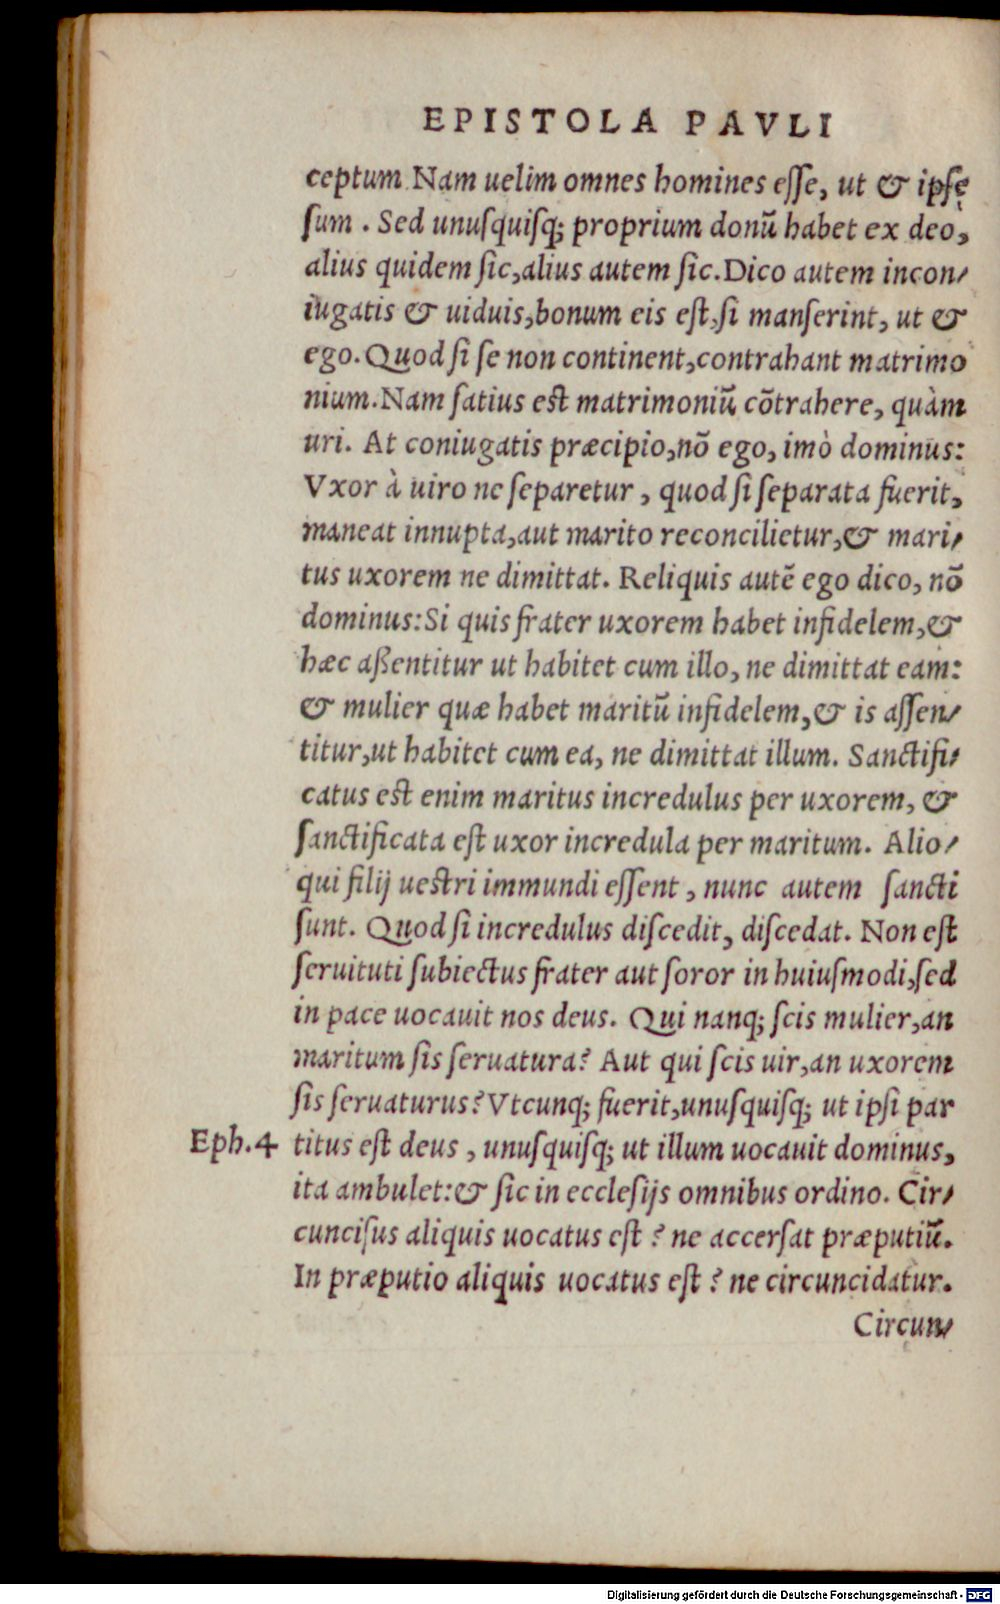 EPISTOLA PAVLI
ceptum. Nam uelim omnes homines eſſe, ut & ipſę
ſum. Sed unuſquiſq; proprium donū habet ex deo,
alius quidem ſic, alius autem ſic. Dico autem incon/
iugatis & uiduis, bonum eis eſt, ſi manſerint, ut &
ego. Quod ſi ſe non continent, contrahant matrimo
nium. Nam ſatius eſt matrimoniū cōtrahere, quàm
uri. At coniugatis præcipio, nō ego, imò dominus:
Vxor à uiro ne ſeparetur, quod ſi ſeparata fuerit,
maneat innupta, aut marito reconcilietur, & mari/
tus uxorem ne dimittat. Reliquis autē ego dico, nō
dominus: Si quis frater uxorem habet infidelem, &
hæc aßentitur ut habitet cum illo, ne dimittat eam:
& mulier quæ habet maritū infidelem, & is aſſen/
titur, ut habitet cum ea, ne dimittat illum. Sanctifi/
catus eſt enim maritus incredulus per uxorem, &
ſanctificata eſt uxor incredula per maritum. Alio/
qui filij ueſtri immundi eſſent, nunc autem ſancti
ſunt. Quod ſi incredulus diſcedit, diſcedat. Non eſt
ſeruituti ſubiectus frater aut ſoror in huiuſmodi, ſed
in pace uocauit nos deus. Qui nanq; ſcis mulier, an
maritum ſis ſeruatura? Aut qui ſcis uir, an uxorem
ſis ſeruaturus? Vtcunq; fuerit, unuſquiſq; ut ipſi par
Eph. 4 titus eſt deus, unuſquiſq; ut illum uocauit dominus,
ita ambulet: & ſic in eccleſijs omnibus ordino. Cir/
cunciſus aliquis uocatus eſt? ne accerſat præputiū.
In præputio aliquis uocatus eſt? ne circuncidatur.
Circun/
Digitalisierung gefördert durch die Deutsche Forschungsgemeinschaft - DFG